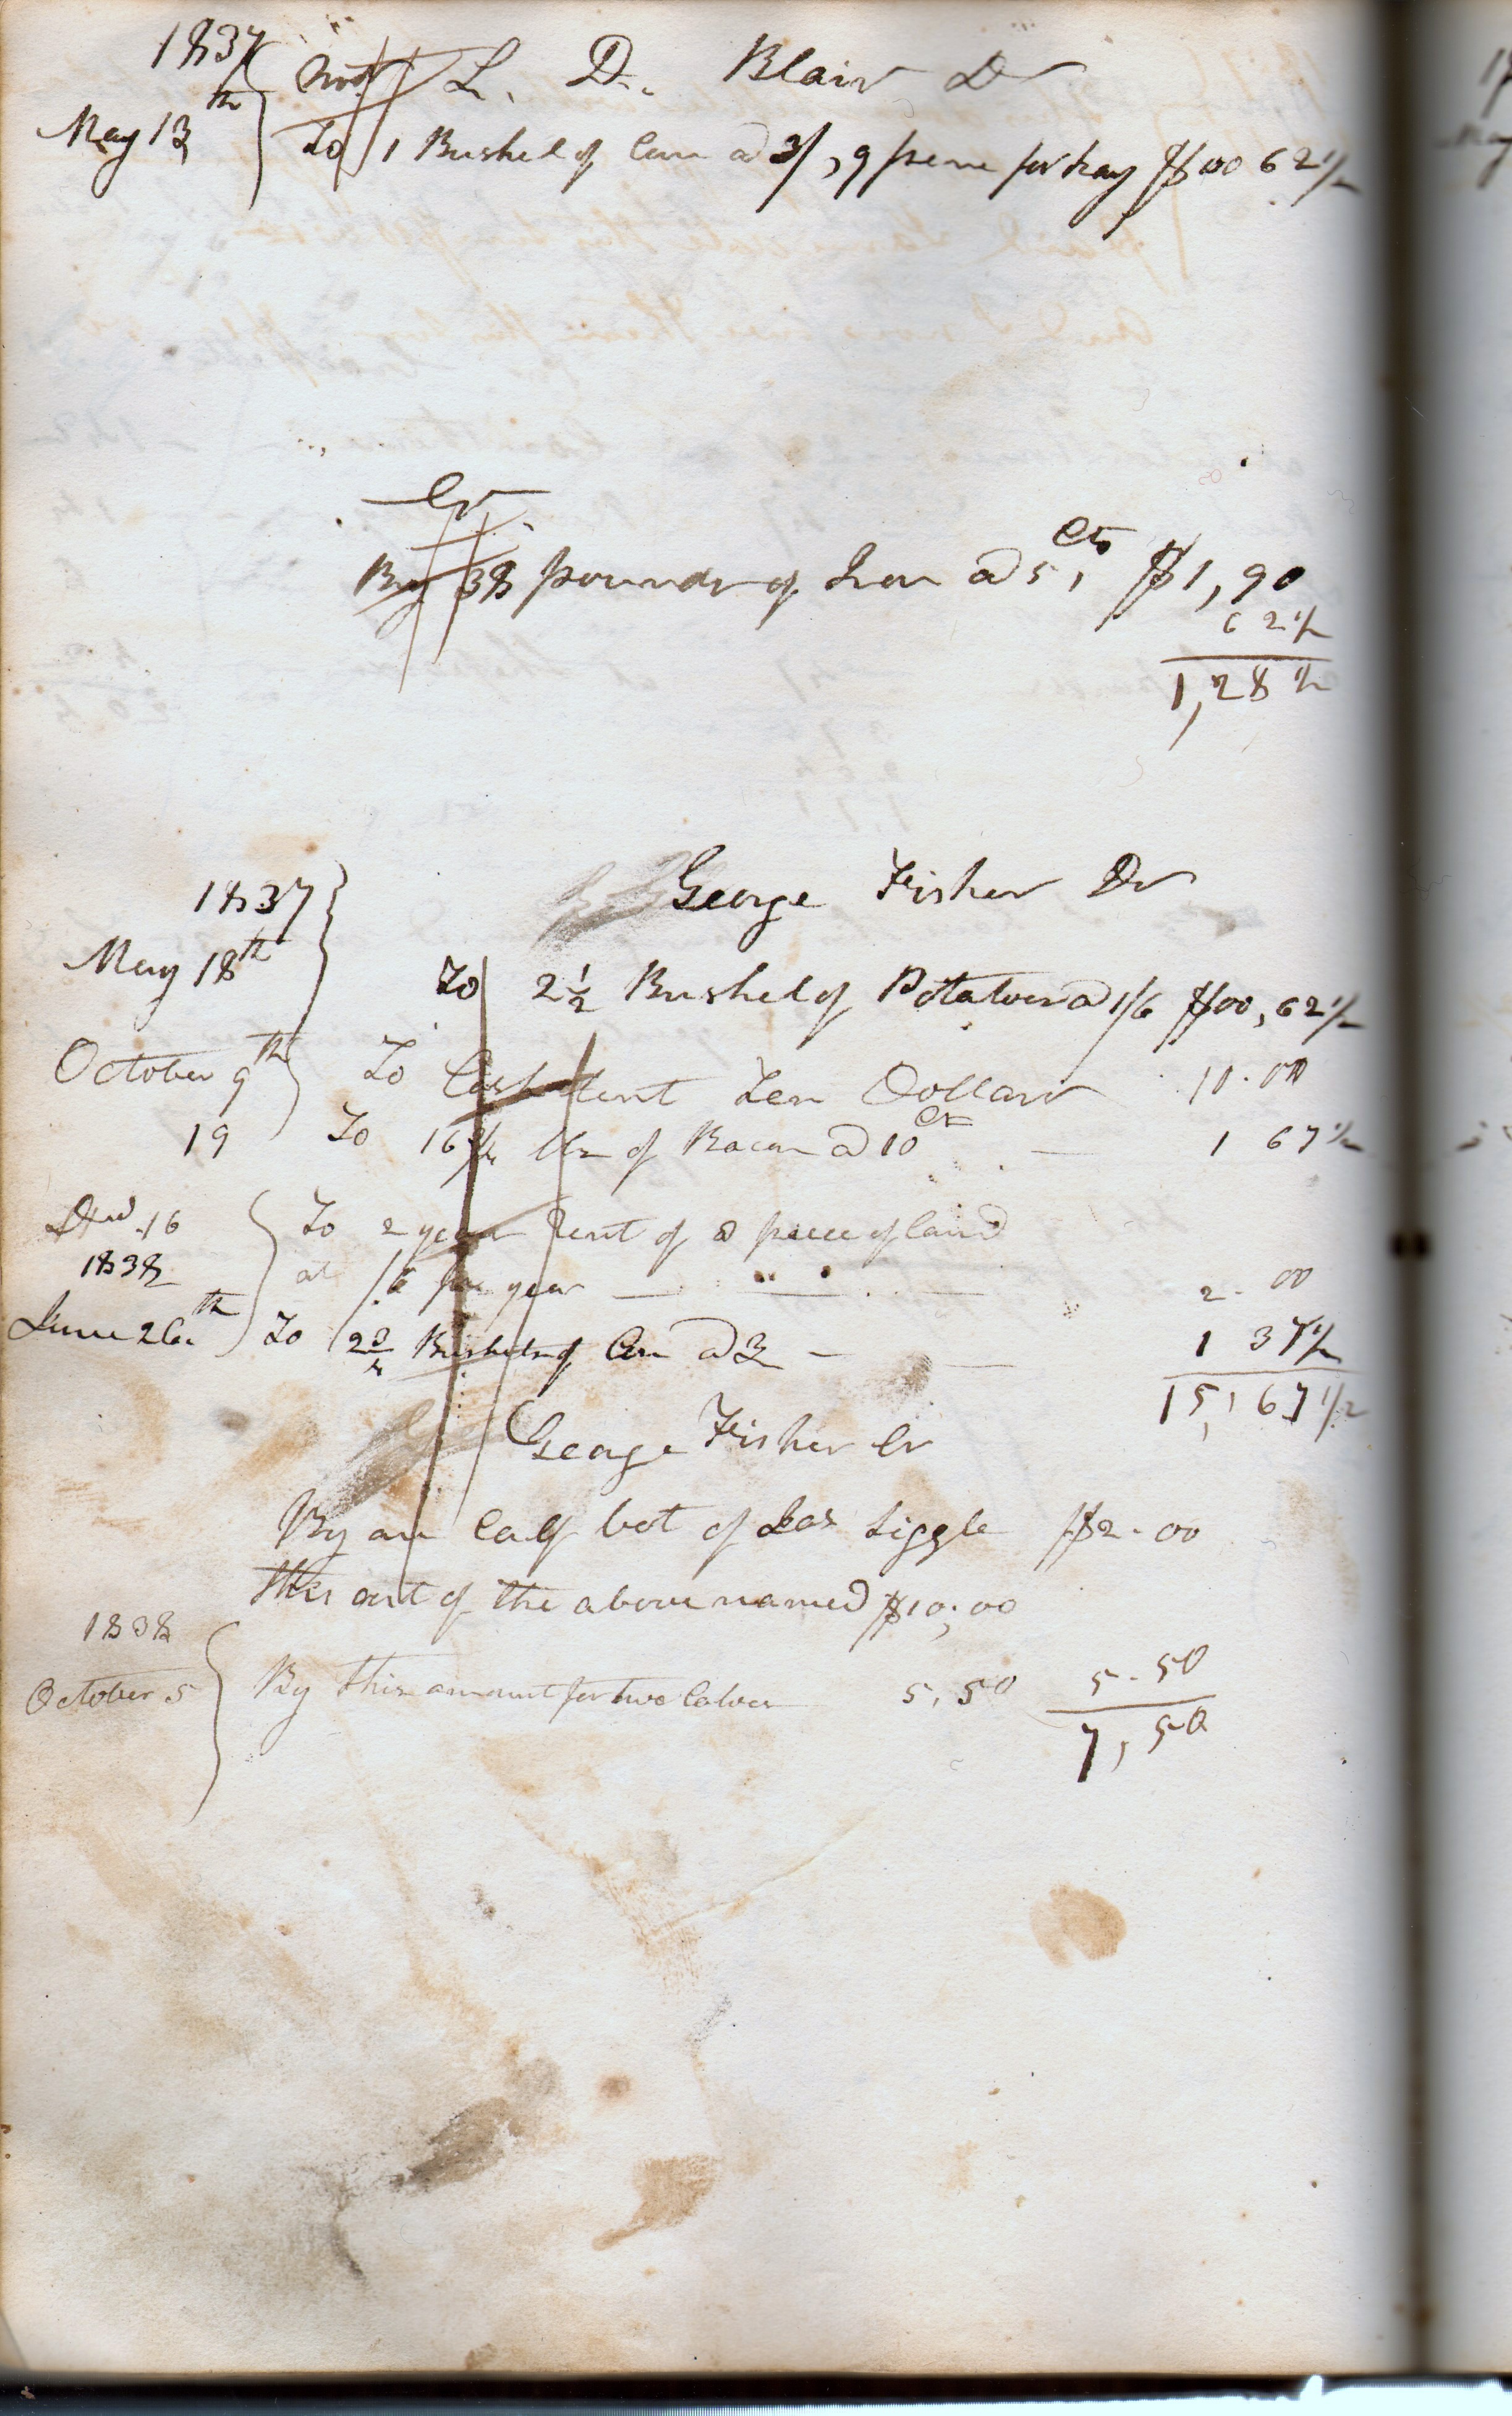 1837 L. D. Blair Dr
May 13th To 1 Bushel of Corn @ 3/, 9 pence for hay $00 62 1/2
Cr
By 38 pounds of Iron @ 5, cts $1,90
62 1/2
1,28 1/2
1837 George Fisher Dr
May 18th To 2 1/2 Bushel of Potatoes @ 1/6 $00,62 1/2
October 9th To Cash lent Ten Dollars 10.00
19 To 16 3/4 lbs of Bacon @ 10 cts 1 67 1/2
16 To 2 year rent of a piece of land
1838 at /6 per year 2.00
June 26th To 2 3/4 Bushels of Corn @ 3 1 37 1/2
15,67 1/2
George Fisher Cr
By an Calf bot of Jas Siggle $2.00
this out of the above named $10,00
1838
October 5 By this amount for two Calves 5,50 5.50
7,50